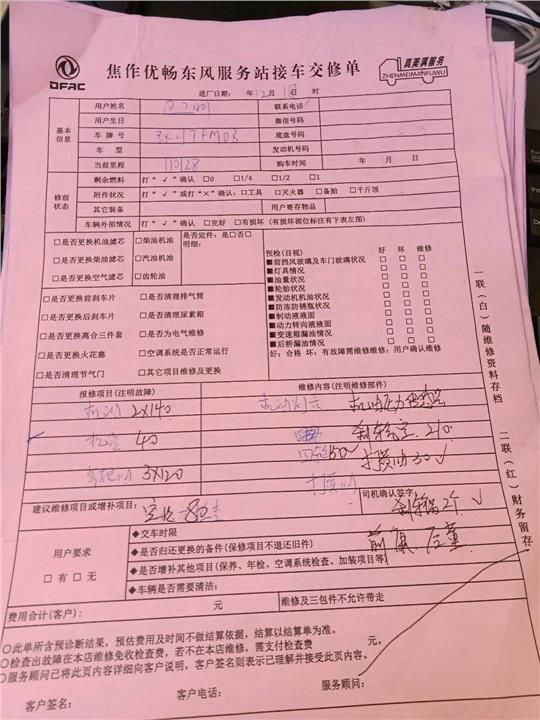 DFAC
焦作优畅东风服务站接车交修单
真美满服务
ZHENMEIMANFUWU
送厂日期: 年12月1日 时
基本信息
用户姓名 联系电话
用户生日 微信号码
车牌号 底盘号码
车型 发动机号码
当前里程 110128 购车时间 年 月 日
修前状态
剩余燃料 打“√”确认 □0 □1/4 □1/2 □1
附件状况 打“√”或打“×”确认:□工具 □灭火器 □备胎 □千斤顶
其它装备 用户寄存物品
车辆外部情况 打“√”确认 □完好 □有损坏(有损坏部位标注有下表左图)
□是否更换机油滤芯 □柴油机油 是否定件:是□否□
明细:
□是否更换柴油滤芯 □汽油机油
□是否更换空气滤芯 □齿轮油
□是否更换前刹车片 □是否清理排气筒
□是否更换后刹车片 □是否清理尿素箱
□是否更换离合三件套 □是否为电气维修
□是否更换火花塞 □空调系统是否正常运行
□是否清理节气门 □其它项目维修及更换
预检(目视) 好 坏 维修
■前挡风玻璃及车门玻璃状况 □ □ □
■灯具情况 □ □ □
■油量状况 □ □ □
■轮胎状况 □ □ □
■发动机机油状况 □ □ □
■防冻防锈瓶状况 □ □ □
■制动液液面 □ □ □
■动力转向液液面 □ □ □
■变速箱漏油情况 □ □ □
■后桥漏油情况 □ □ □
好:合格 坏:有故障需维修维修:用户确认维修
报修项目(注明故障) 维修内容(注明维修部件)
2X140
40 210
50
3X120 30
建议维修项目或增补项目: 司机确认签字:
2个
用户要求
□有 □无
◆交车时限
◆是否归还更换的备件(保修项目不退旧件)
◆是否增补其他项目(保养、年检、空调系统检查、加装项目等)
◆车辆是否需要清洁:
费用合计(客户): 元 维修及三包件不允许带走
○此单所含预诊断结果,预估费用及时间不做结算依据,结算以结算单为准。
○检查出故障在本店维修免收检查费,若不在本店维修,需支付检查费 元。
○服务顾问已将此页内容详细向客户说明,客户签名则表示已理解并接受此页内容。
客户签名: 客户电话: 服务顾问:
一联(白)随维修资料存档
二联(红)财务留存